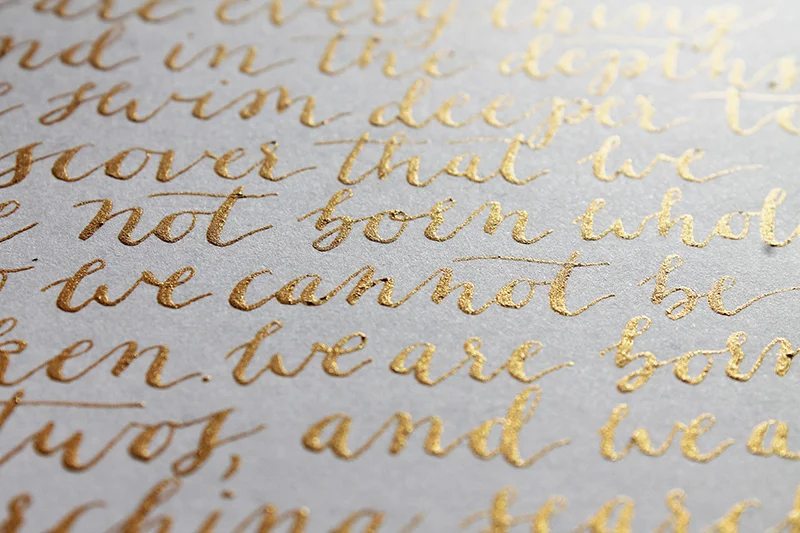 are every thing
nd in the depths
swim deeper to
scover that we
not born whol
we cannot be
ken. we are born
twos, and we a
rching, sear